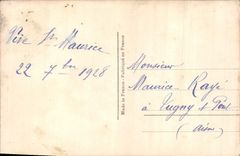 Vive St Maurice
22 7bre 1928
Made in France - Fabriqué en France
Monsieur
Maurice Rayé
à Tugny et Pont
(Aisne)